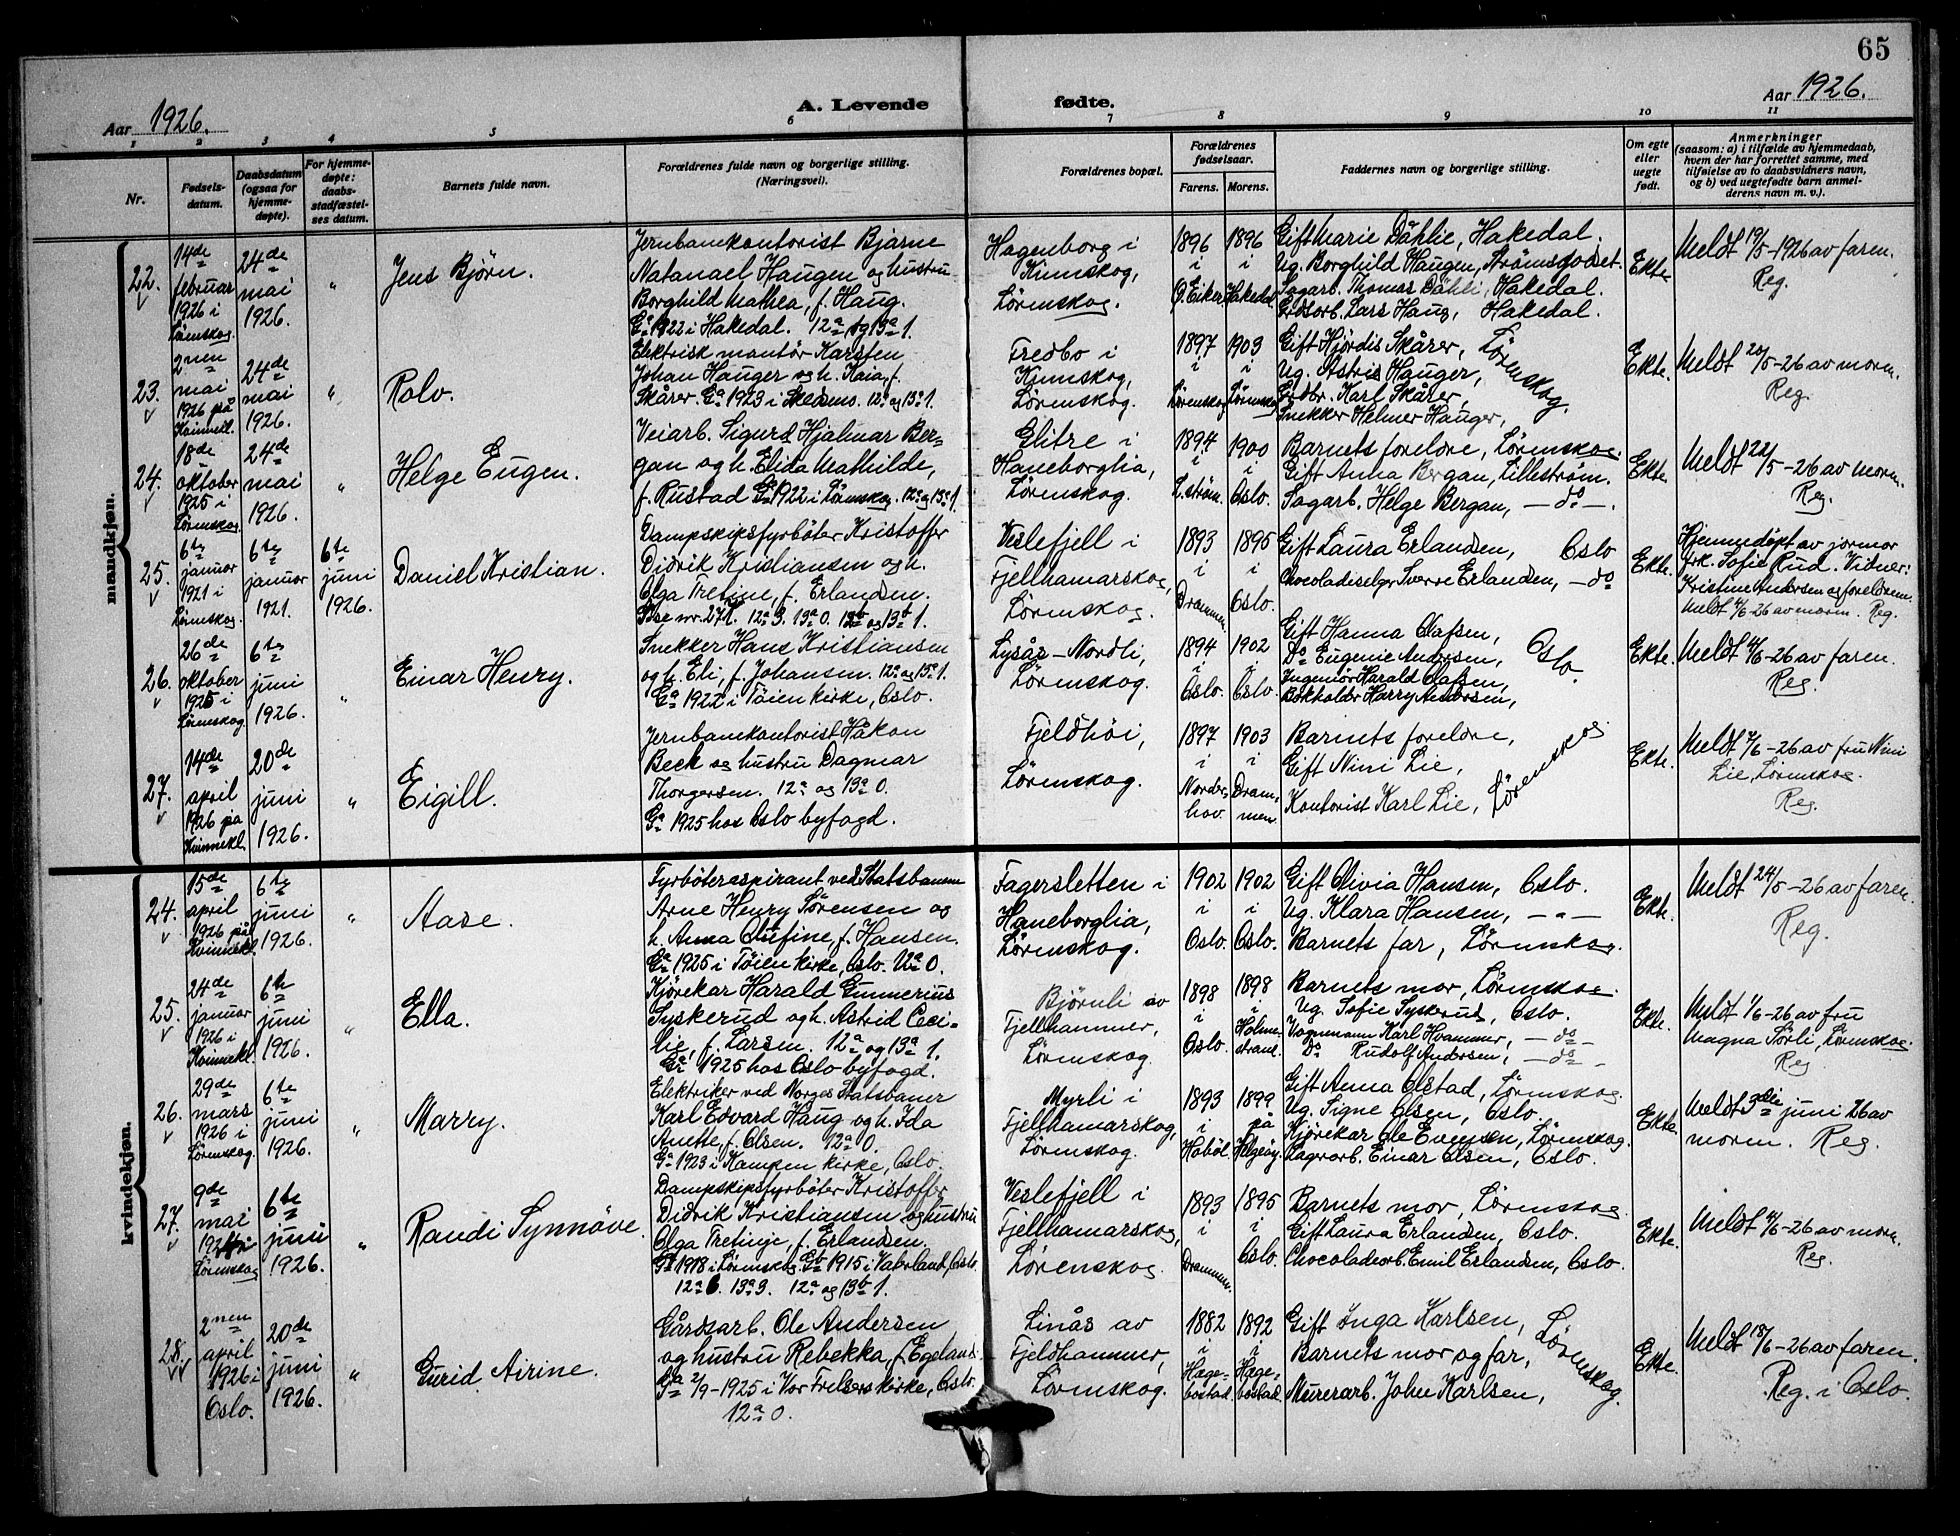 65
Aar 1926.
A. Levende fødte.
Aar 1926.
1 2 3 4 5 6 7 8 9 10 11
Nr.
Fødsels-
datum.
Daabsdatum
(ogsaa for
hjemme-
døpte).
For hjemme-
døpte:
daabs-
stadfæstel-
ses datum.
Barnets fulde navn.
Forældrenes fulde navn og borgerlige stilling.
(Næringsvei).
Forældrenes bopæl.
Forældrenes
fødselsaar.
Farens. Morens.
Faddernes navn og borgerlige stilling.
Om egte
eller
uegte
født.
Anmerkninger
(saasom: a) i tilfælde av hjemmedaab,
hvem der har forrettet samme, med
tilføielse av to daabsvidners navn,
og b) ved uegtefødte barn anmel-
derens navn m. v.).
mandkjøn.
22.
14de
februar
1926 i
Lørenskog.
24de
mai
1926.
"
Jens Bjørn.
Jernbanekontorist Bjarne
Natanael Haugen og hustru
Borghild Mathea, f. Haug.
Ga 1922 i Hakedal. 12a og 13a 1.
Hagenborg i
Kinnskog,
Lørenskog.
1896
i
Ø. Eiker
1896
i
Hakedal
Gift Marie Dåhlie, Hakedal.
Ug. Borghild Haugen, Strømsgodset.
Sagarb. Thomas Dåhli, Hakedal.
Grdsarb. Lars Haug, Hakedal.
Ekte.
Meldt 19/5-1926 av faren.
Reg.
23.
2nen
mai
1926 på
Kvinnekl.
24de
mai
1926.
"
Rolv.
Elektrisk montør Karsten
Johan Hauger og h. Kaia, f.
Skårer. Ga 1923 i Skedsmo. 12a og 13a 1.
Fredbo i
Kinnskog,
Lørenskog.
1897
i
Lørenskog
1903
i
Lørenskog
Gift Hjørdis Skårer,
Ug. Astrid Hauger,
Grdbr. Karl Skårer,
Snekker Helmer Hauger,
Lørenskog.
Ekte.
Meldt 20/5-26 av moren.
Reg.
24.
18de
oktober
1925 i
Lørenskog.
24de
mai
1926.
"
Helge Eugen.
Veiarb. Sigurd Hjalmar Ber-
gan og h. Elida Mathilde,
f. Rustad Ga 1922 i Lørenskog. 12a og 13a 1.
Glitre i
Haneborglia,
Lørenskog.
1894
i
L.strøm.
1900
i
Oslo.
Barnets foreldre, Lørenskog.
Gift Anna Bergan, Lillestrøm.
Sagarb. Helge Bergan, —do—.
Ekte.
Meldt 22/5-26 av moren.
Reg.
25.
6te
januar
1921 i
Lørenskog.
6te
januar
1921.
6te
juni
1926.
Daniel Kristian.
Dampskipsfyrbøter Kristoffer
Didrik Kristiansen og h.
Olga Tretine, f. Erlandsen.
Se nr. 27 k. 12a 3. 13a 0. 12b og 13b 1.
Veslefjell i
Fjellhamarskog,
Lørenskog.
1893
i
Drammen.
1895
i
Oslo.
Gift Laura Erlandsen, Oslo
Chocoladeselger Sverre Erlandsen, —do
Ekte.
Hjemmedøpt av jormor
frk. Sofie Rud. Vidner:
Kristine Andersen og foreldrene.
Meldt 4/6-26 av moren. Reg.
26.
26de
oktober
1925 i
Lørenskog.
6te
juni
1926.
"
Einar Henry.
Snekker Hans Kristiansen
og h. Eli, f. Johansen. 12a og 13a 1.
Ga 1922 i Tøien kirke, Oslo.
Lysås – Nordli,
Lørenskog.
1894
i
Oslo.
1902
i
Oslo.
Gift Hanna Olafsen,
Do Eugenie Andersen,
Ingeniør Harald Olafsen,
Bokholder Harry Andersen,
Oslo.
Ekte.
Meldt 4/6-26 av faren.
Reg.
27.
14de
april
1926 på
Kvinnekl.
20de
juni
1926.
"
Eigill.
Jernbanekontorist Håkon
Beck og hustru Dagmar
Thorgersen. 12a og 13a 0.
Ga 1925 hos Oslo byfogd.
Fjeldhøi,
Lørenskog.
1897
i
Norder-
hov.
1903
i
Dram-
men.
Barnets foreldre,
Gift Nini Lie,
Kontorist Karl Lie,
Lørenskog
Ekte.
Meldt 7/6-26 av fru Nini
Lie, Lørenskog.
Reg.
kvindekjøn.
24.
15de
april
1926 på
Kvinnekl.
6te
juni
1926.
"
Aase.
Fyrbøteraspirant ved Statsbanene
Arne Henry Sørensen og
h. Anna Olufine, f. Hansen.
Ga 1925 i Tøien kirke, Oslo. 12a 0.
Fagersletten i
Haneborglia,
Lørenskog.
1902
i
Oslo.
1902
i
Oslo.
Gift Olivia Hansen, Oslo.
Ug. Klara Hansen, – " –
Barnets far, Lørenskog.
Ekte.
Meldt 24/5-26 av faren.
Reg.
25.
24de
januar
1926 i
Kvinnekl.
6te
juni
1926.
"
Ella.
Kjørekar Harald Gunnerius
Syskerud og h. Astrid Ceci-
lie, f. Larsen. 12a og 13a 1.
Ga 1925 hos Oslo byfogd.
Bjørnli av
Fjellhammer,
Lørenskog.
1898
i
Oslo.
1898
i
Holme-
strand.
Barnets mor, Lørenskog.
Ug. Sofie Syskerud, Oslo.
Vognmann Karl Hvammer, —do—
Do Rudolf Andersen, —do—
Ekte.
Meldt 1/6-26 av fru
Magna Sørli, Lørenskog.
Reg.
26.
29de
mars
1926 i
Lørenskog.
6te
juni
1926.
"
Marry.
Elektriker ved Norges Statsbaner
Karl Edvard Haug og h. Ida
Anette, f. Olsen. 12a 0.
Ga 1923 i Kampen kirke, Oslo.
Myrli i
Fjellhamarskog,
Lørenskog.
1893
i
Høbøl.
1899
på
Helgøy.
Gift Anna Olstad, Lørenskog.
Ug. Signe Olsen, Oslo.
Kjørekar Ole Evensen, Lørenskog.
Lagerarb. Einar Olsen, Oslo.
Ekte.
Meldt 3die juni 26 av
moren. Reg.
27.
9de
mai
Lørenskog
6te
juni
1926.
"
Randi Synnöve.
Dampskipsfyrbøter Kristoffer
Didrik Kristiansen og hustru
Olga Tretinje, f. Erlandsen.
Ga 1918 i Lørenskog. Gb 1915 i Vaterland, Oslo.
12a 6. 13a 3. 12a og 13b 1.
Veslefjell i
Fjellhamarskog,
Lørenskog.
1893
i
Drammen.
1895
i
Oslo.
Barnets mor, Lørenskog
Gift Laura Erlandsen, Oslo.
Chocoladearb. Emil Erlandsen, Oslo.
Ekte.
Meldt 4/6-26 av moren.
Reg.
28.
2nen
april
1926 i
Oslo.
20de
juni
1926.
"
Gurid Airine.
Gårdsarb. Ole Andersen
og hustru Rebekka, f. Egeland.
Ga 2/9-1925 i Vor Frelsers kirke, Oslo.
12a 0.
Linås av
Fjeldhammer,
Lørenskog.
1882
i
Hæge-
bostad.
1892
i
Hæge-
bostad.
Gift Inga Karlsen,
Barnets mor og far,
Murerarb. John Karlsen,
Lørenskog.
Ekte.
Meldt 18/6-26 av faren.
Reg. i Oslo.